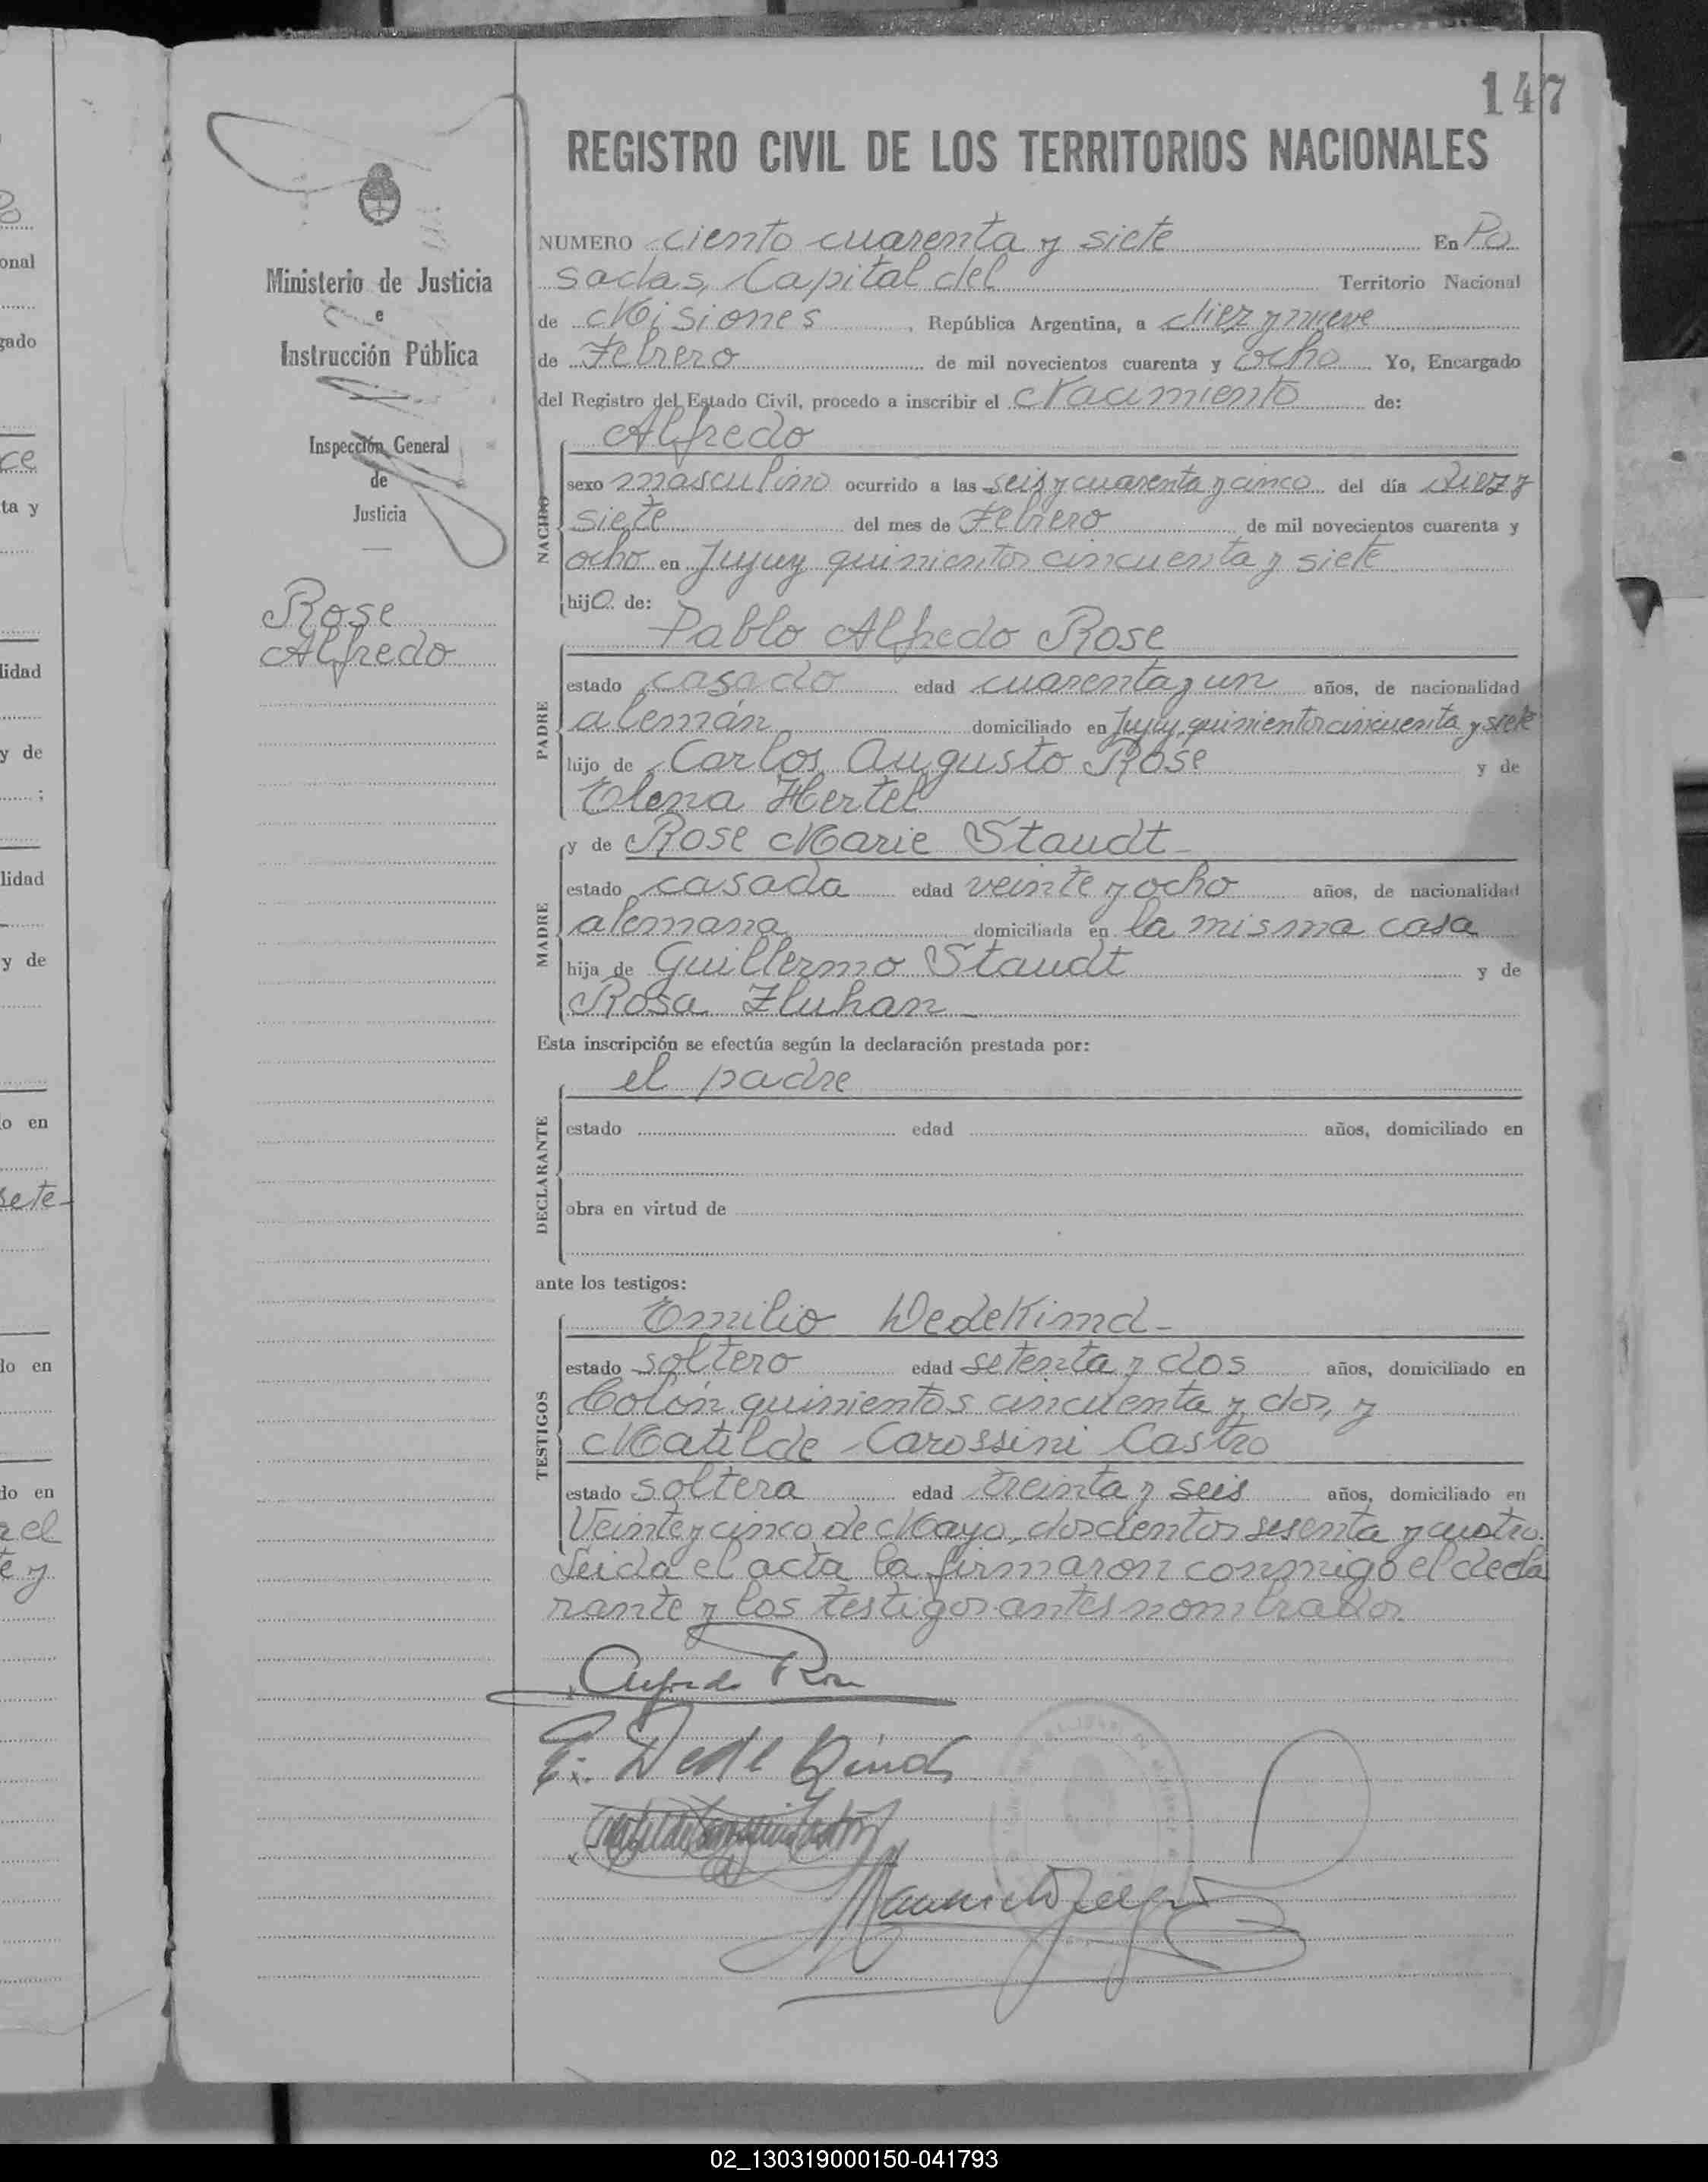 147
REGISTRO CIVIL DE LOS TERRITORIOS NACIONALES
Ministerio de Justicia
e
Instrucción Pública
Inspección General
de
Justicia
Rose
Alfredo
NUMERO ciento cuarenta y siete En Po
sadas, Capital del Territorio Nacional
de Misiones, República Argentina, a diez y nueve
de Febrero de mil novecientos cuarenta y ocho Yo, Encargado
del Registro del Estado Civil, procedo a inscribir el Nacimiento de:
NACIDO
Alfredo
sexo masculino ocurrido a las seis y cuarenta y cinco del día diez y
siete del mes de Febrero de mil novecientos cuarenta y
ocho en Jujuy quinientos cincuenta y siete
hijo de:
PADRE
Pablo Alfredo Rose
estado casado edad cuarenta y un años, de nacionalidad
alemán domiciliado en Jujuy, quinientos cincuenta y siete
hijo de Carlos Augusto Rose y de
Elena Hertel
MADRE
y de Rose Marie Staudt
estado casada edad veinte y ocho años, de nacionalidad
alemana domiciliada en la misma casa
hija de Guillermo Staudt y de
Rosa Fluhan
Esta inscripción se efectúa según la declaración prestada por:
DECLARANTE
el padre
estado edad años, domiciliado en
obra en virtud de
ante los testigos:
TESTIGOS
Emilio Dedekind
estado soltero edad setenta y dos años, domiciliado en
Colón quinientos cincuenta y dos, y
Matilde Carossini Castro
estado soltera edad treinta y seis años, domiciliado en
Veinte y cinco de Mayo, doscientos sesenta y cuatro.
Leida el acta la firmaron conmigo el decla
rante y los testigos antes nombrados.
Alfredo Rose
E. Dedekind
02_130319000150-041793